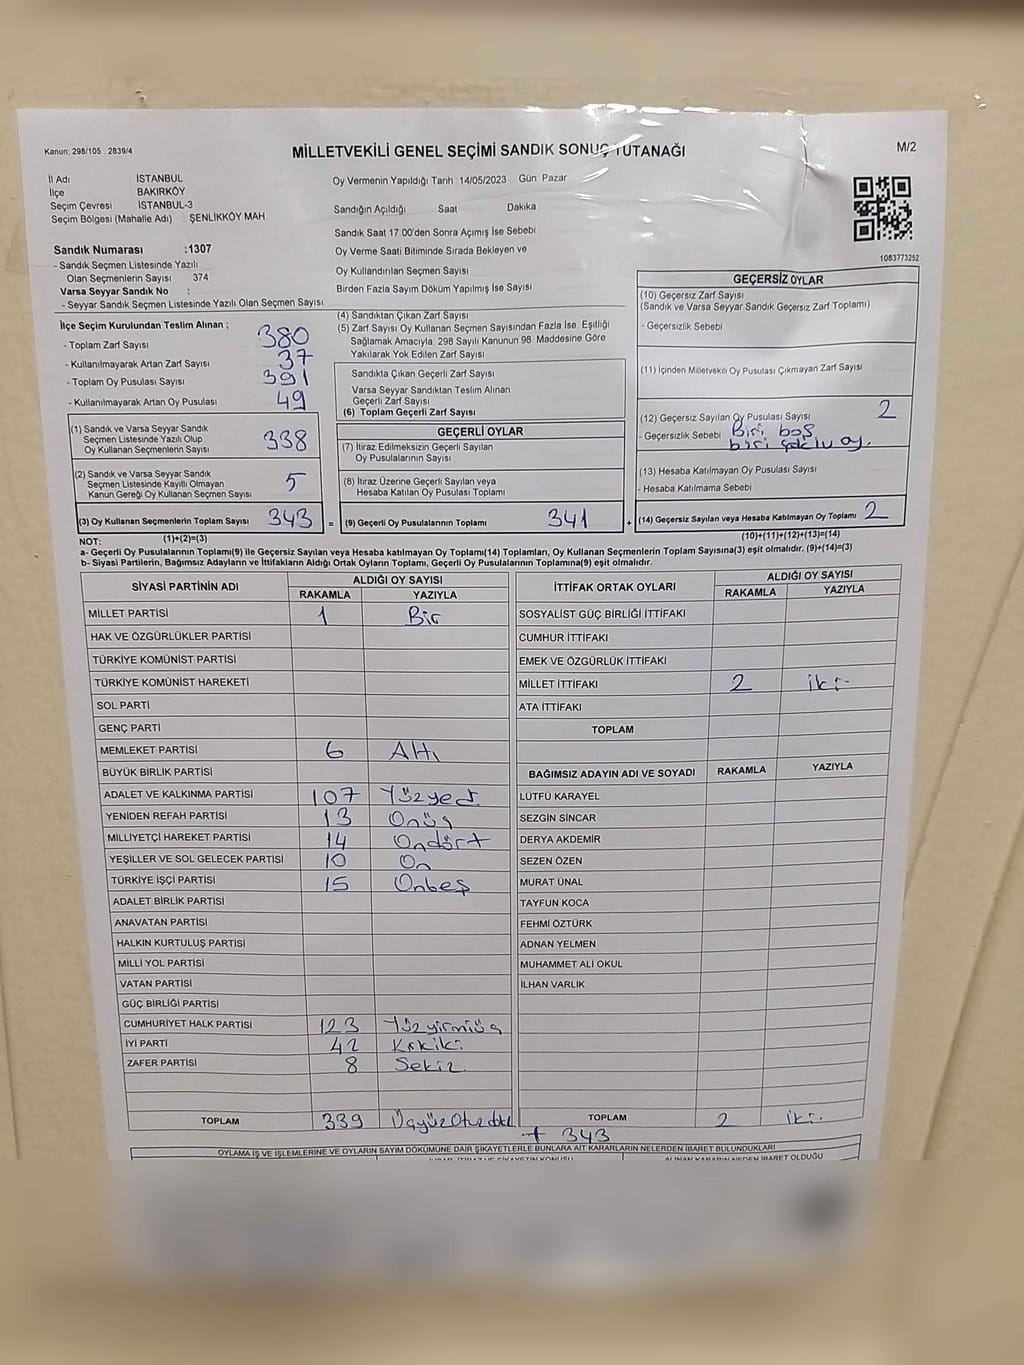 Kanun; 298/105 : 2839/4
MİLLETVEKİLİ GENEL SEÇİMİ SANDIK SONUÇ TUTANAĞI
M/2
İl Adı İSTANBUL
İlçe BAKIRKÖY
Seçim Çevresi İSTANBUL-3
Seçim Bölgesi (Mahalle Adı) : ŞENLİKKÖY MAH.
Oy Vermenin Yapıldığı Tarih 14/05/2023 Gün Pazar
Sandığın Açıldığı Saat Dakika
Sandık Saat 17.00'den Sonra Açımış İse Sebebi
Oy Verme Saati Bitiminde Sırada Bekleyen ve
Oy Kullandırılan Seçmen Sayısı
Birden Fazla Sayım Döküm Yapılmış İse Sayısı
1083773252
Sandık Numarası :1307
- Sandık Seçmen Listesinde Yazılı
Olan Seçmenlerin Sayısı 374
Varsa Seyyar Sandık No :
- Seyyar Sandık Seçmen Listesinde Yazılı Olan Seçmen Sayısı
İlçe Seçim Kurulundan Teslim Alınan ;
- Toplam Zarf Sayısı 380
- Kullanılmayarak Artan Zarf Sayısı 37
- Toplam Oy Pusulası Sayısı 391
- Kullanılmayarak Artan Oy Pusulası 49
(1) Sandık ve Varsa Seyyar Sandık
Seçmen Listesinde Yazılı Olup
Oy Kullanan Seçmenlerin Sayısı 338
(2) Sandık ve Varsa Seyyar Sandık
Seçmen Listesinde Kayıtlı Olmayan
Kanun Gereği Oy Kullanan Seçmen Sayısı 5
(3) Oy Kullanan Seçmenlerin Toplam Sayısı 343
(1)+(2)=(3)
(4) Sandıktan Çıkan Zarf Sayısı
(5) Zarf Sayısı Oy Kullanan Seçmen Sayısından Fazla İse, Eşitliği
Sağlamak Amacıyla, 298 Sayılı Kanunun 98. Maddesine Göre
Yakılarak Yok Edilen Zarf Sayısı
Sandıkta Çıkan Geçerli Zarf Sayısı
Varsa Seyyar Sandıktan Teslim Alınan
Geçerli Zarf Sayısı
(6) Toplam Geçerli Zarf Sayısı
GEÇERLİ OYLAR
(7) İtiraz Edilmeksizin Geçerli Sayılan
Oy Pusulalarının Sayısı
(8) İtiraz Üzerine Geçerli Sayılan veya
Hesaba Katılan Oy Pusulası Toplamı
= (9) Geçerli Oy Pusulalarının Toplamı 341 +
GEÇERSİZ OYLAR
(10) Geçersiz Zarf Sayısı
(Sandık ve Varsa Seyyar Sandık Geçersiz Zarf Toplamı)
- Geçersizlik Sebebi
(11) İçinden Milletvekili Oy Pusulası Çıkmayan Zarf Sayısı
(12) Geçersiz Sayılan Oy Pusulası Sayısı 2
- Geçersizlik Sebebi Biri boş
biri çoklu oy.
(13) Hesaba Katılmayan Oy Pusulası Sayısı
- Hesaba Katılmama Sebebi
(14) Geçersiz Sayılan veya Hesaba Katılmayan Oy Toplamı 2
(10)+(11)+(12)+(13)=(14)
NOT:
a- Geçerli Oy Pusulalarının Toplamı(9) ile Geçersiz Sayılan veya Hesaba katılmayan Oy Toplamı(14) Toplamları, Oy Kullanan Seçmenlerin Toplam Sayısına(3) eşit olmalıdır. (9)+(14)=(3)
b- Siyasi Partilerin, Bağımsız Adayların ve İttifakların Aldığı Ortak Oyların Toplamı, Geçerli Oy Pusulalarının Toplamına(9) eşit olmalıdır.
SİYASİ PARTİNİN ADI ALDIĞI OY SAYISI
RAKAMLA YAZIYLA
MİLLET PARTİSİ 1 Bir
HAK VE ÖZGÜRLÜKLER PARTİSİ
TÜRKİYE KOMÜNİST PARTİSİ
TÜRKİYE KOMÜNİST HAREKETİ
SOL PARTİ
GENÇ PARTİ
MEMLEKET PARTİSİ 6 Altı
BÜYÜK BİRLİK PARTİSİ
ADALET VE KALKINMA PARTİSİ 107 Yüzyedi
YENİDEN REFAH PARTİSİ 13 Onüç
MİLLİYETÇİ HAREKET PARTİSİ 14 Ondört
YEŞİLLER VE SOL GELECEK PARTİSİ 10 On
TÜRKİYE İŞÇİ PARTİSİ 15 Onbeş
ADALET BİRLİK PARTİSİ
ANAVATAN PARTİSİ
HALKIN KURTULUŞ PARTİSİ
MİLLİ YOL PARTİSİ
VATAN PARTİSİ
GÜÇ BİRLİĞİ PARTİSİ
CUMHURİYET HALK PARTİSİ 123 Yüzyirmiüç
İYİ PARTİ 42 Kırkiki
ZAFER PARTİSİ 8 Sekiz
TOPLAM 339
İTTİFAK ORTAK OYLARI ALDIĞI OY SAYISI
RAKAMLA YAZIYLA
SOSYALİST GÜÇ BİRLİĞİ İTTİFAKI
CUMHUR İTTİFAKI
EMEK VE ÖZGÜRLÜK İTTİFAKI
MİLLET İTTİFAKI 2 iki
ATA İTTİFAKI
TOPLAM
BAĞIMSIZ ADAYIN ADI VE SOYADI RAKAMLA YAZIYLA
LÜTFÜ KARAYEL
SEZGİN SİNCAR
DERYA AKDEMİR
SEZEN ÖZEN
MURAT ÜNAL
TAYFUN KOCA
FEHMİ ÖZTÜRK
ADNAN YELMEN
MUHAMMET ALİ OKUL
İLHAN VARLIK
TOPLAM 2 iki
+ 343
OYLAMA İŞ VE İŞLEMLERİNE VE OYLARIN SAYIM DÖKÜMÜNE DAİR ŞİKAYETLERLE BUNLARA AİT KARARLARIN NELERDEN İBARET BULUNDUKLARI